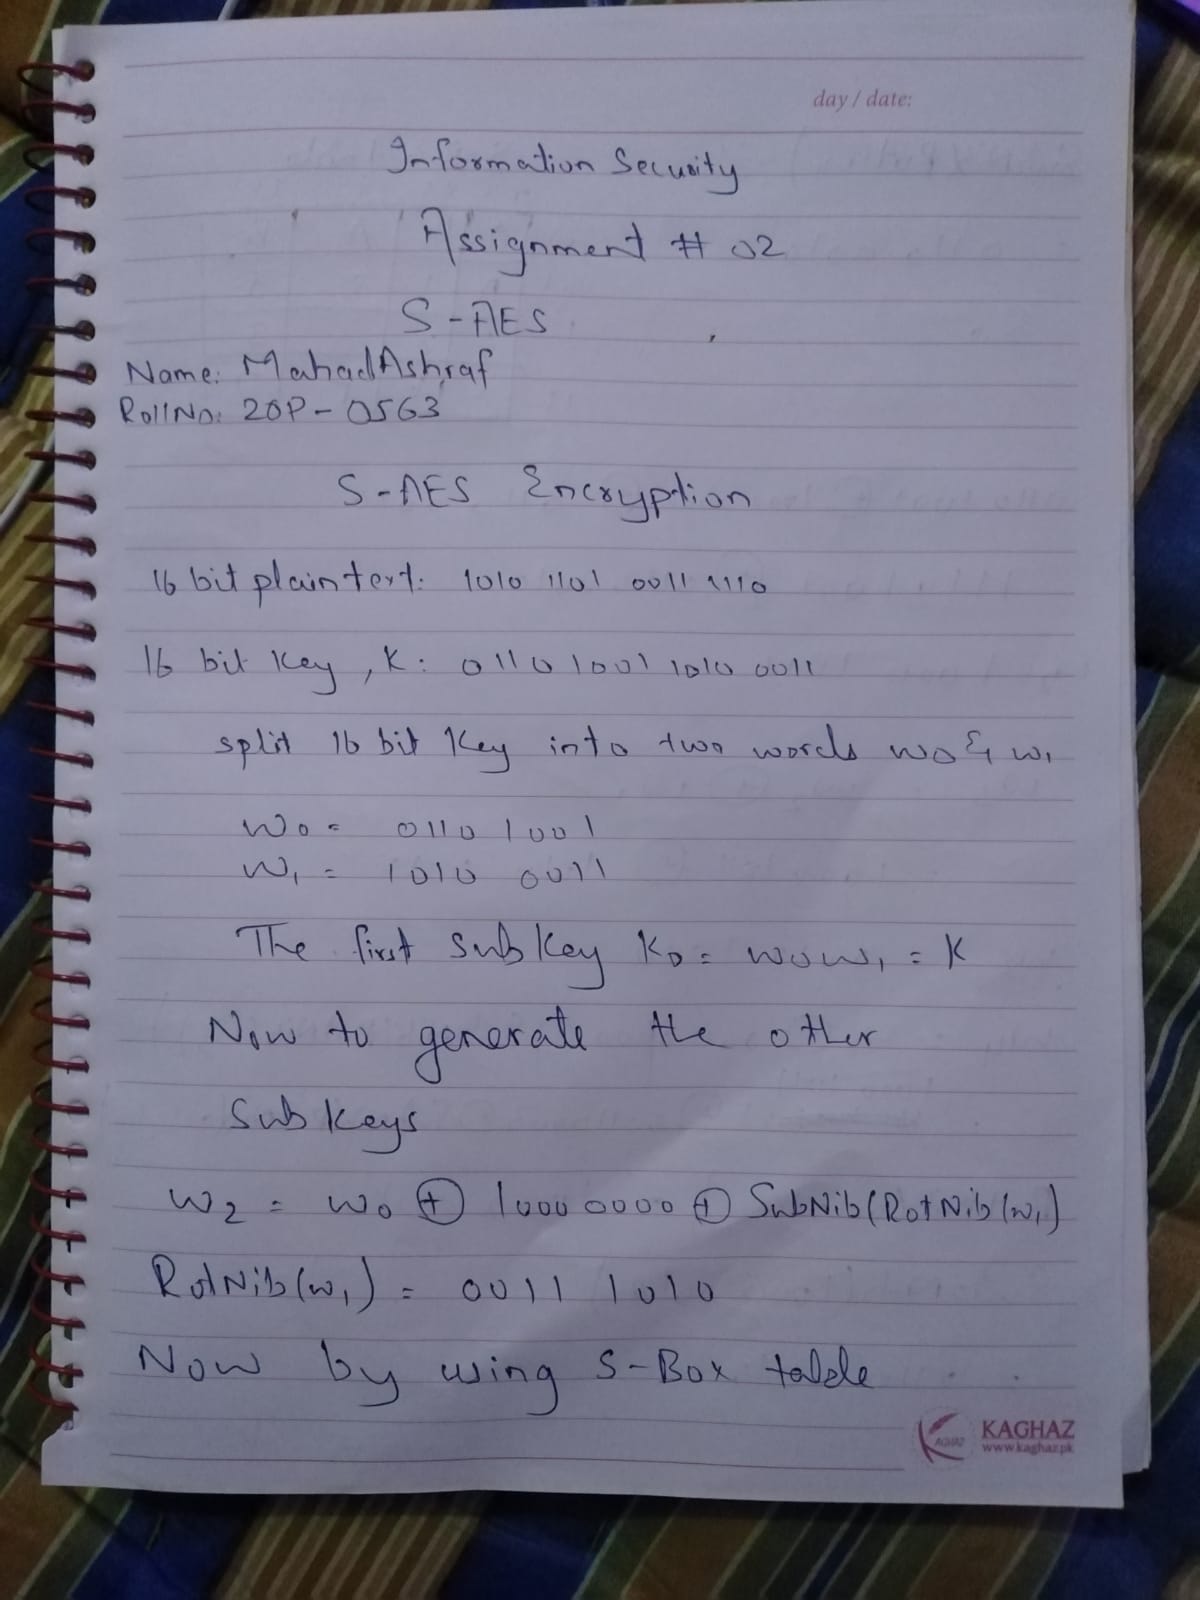 day / date:
Information Security
Assignment # 02
S-AES
Name: Mahad Ashraf
Roll No: 20P-0563
S-AES Encryption
16 bit plaintext: 1010 1101 0011 1110
16 bit Key, K: 0110 1001 1010 0011
split 16 bit Key into two words w0 & w1
w0 = 0110 1001
w1 = 1010 0011
The first subkey K0 = w0w1 = K
Now to generate the other
Subkeys
w2 = w0 ⊕ 1000 0000 ⊕ SubNib(RotNib(w1)
RotNib(w1) = 0011 1010
Now by using S-Box table
KAGHAZ
www.kaghaz.pk